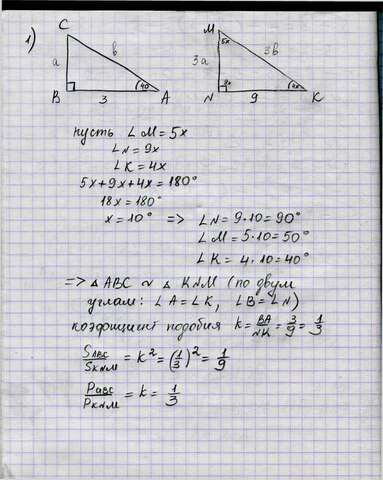 1)
C
a
b
40
B
3
A
M
5x
3a
3b
9x
4x
N
9
K
пусть ∠M = 5x
∠N = 9x
∠K = 4x
5x + 9x + 4x = 180°
18x = 180°
x = 10° => ∠N = 9·10 = 90°
∠M = 5·10 = 50°
∠K = 4·10 = 40°
=> △ABC ~ △KNM (по двум
углам: ∠A = ∠K, ∠B = ∠N)
коэфициент подобия k = BA/NK = 3/9 = 1/3
S_ABC/S_KNM = k² = (1/3)² = 1/9
P_ABC/P_KNM = k = 1/3